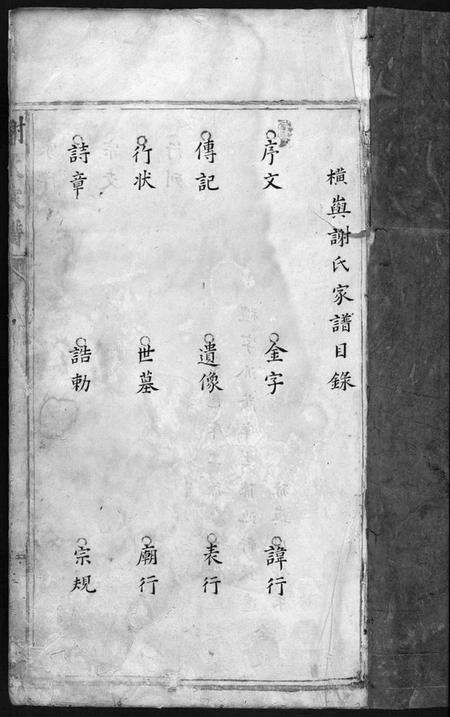 橫輿謝氏家譜目錄
序文
金字
諱行
傳記
遺像
表行
行状
世墓
廟行
詩章
誥勅
宗規